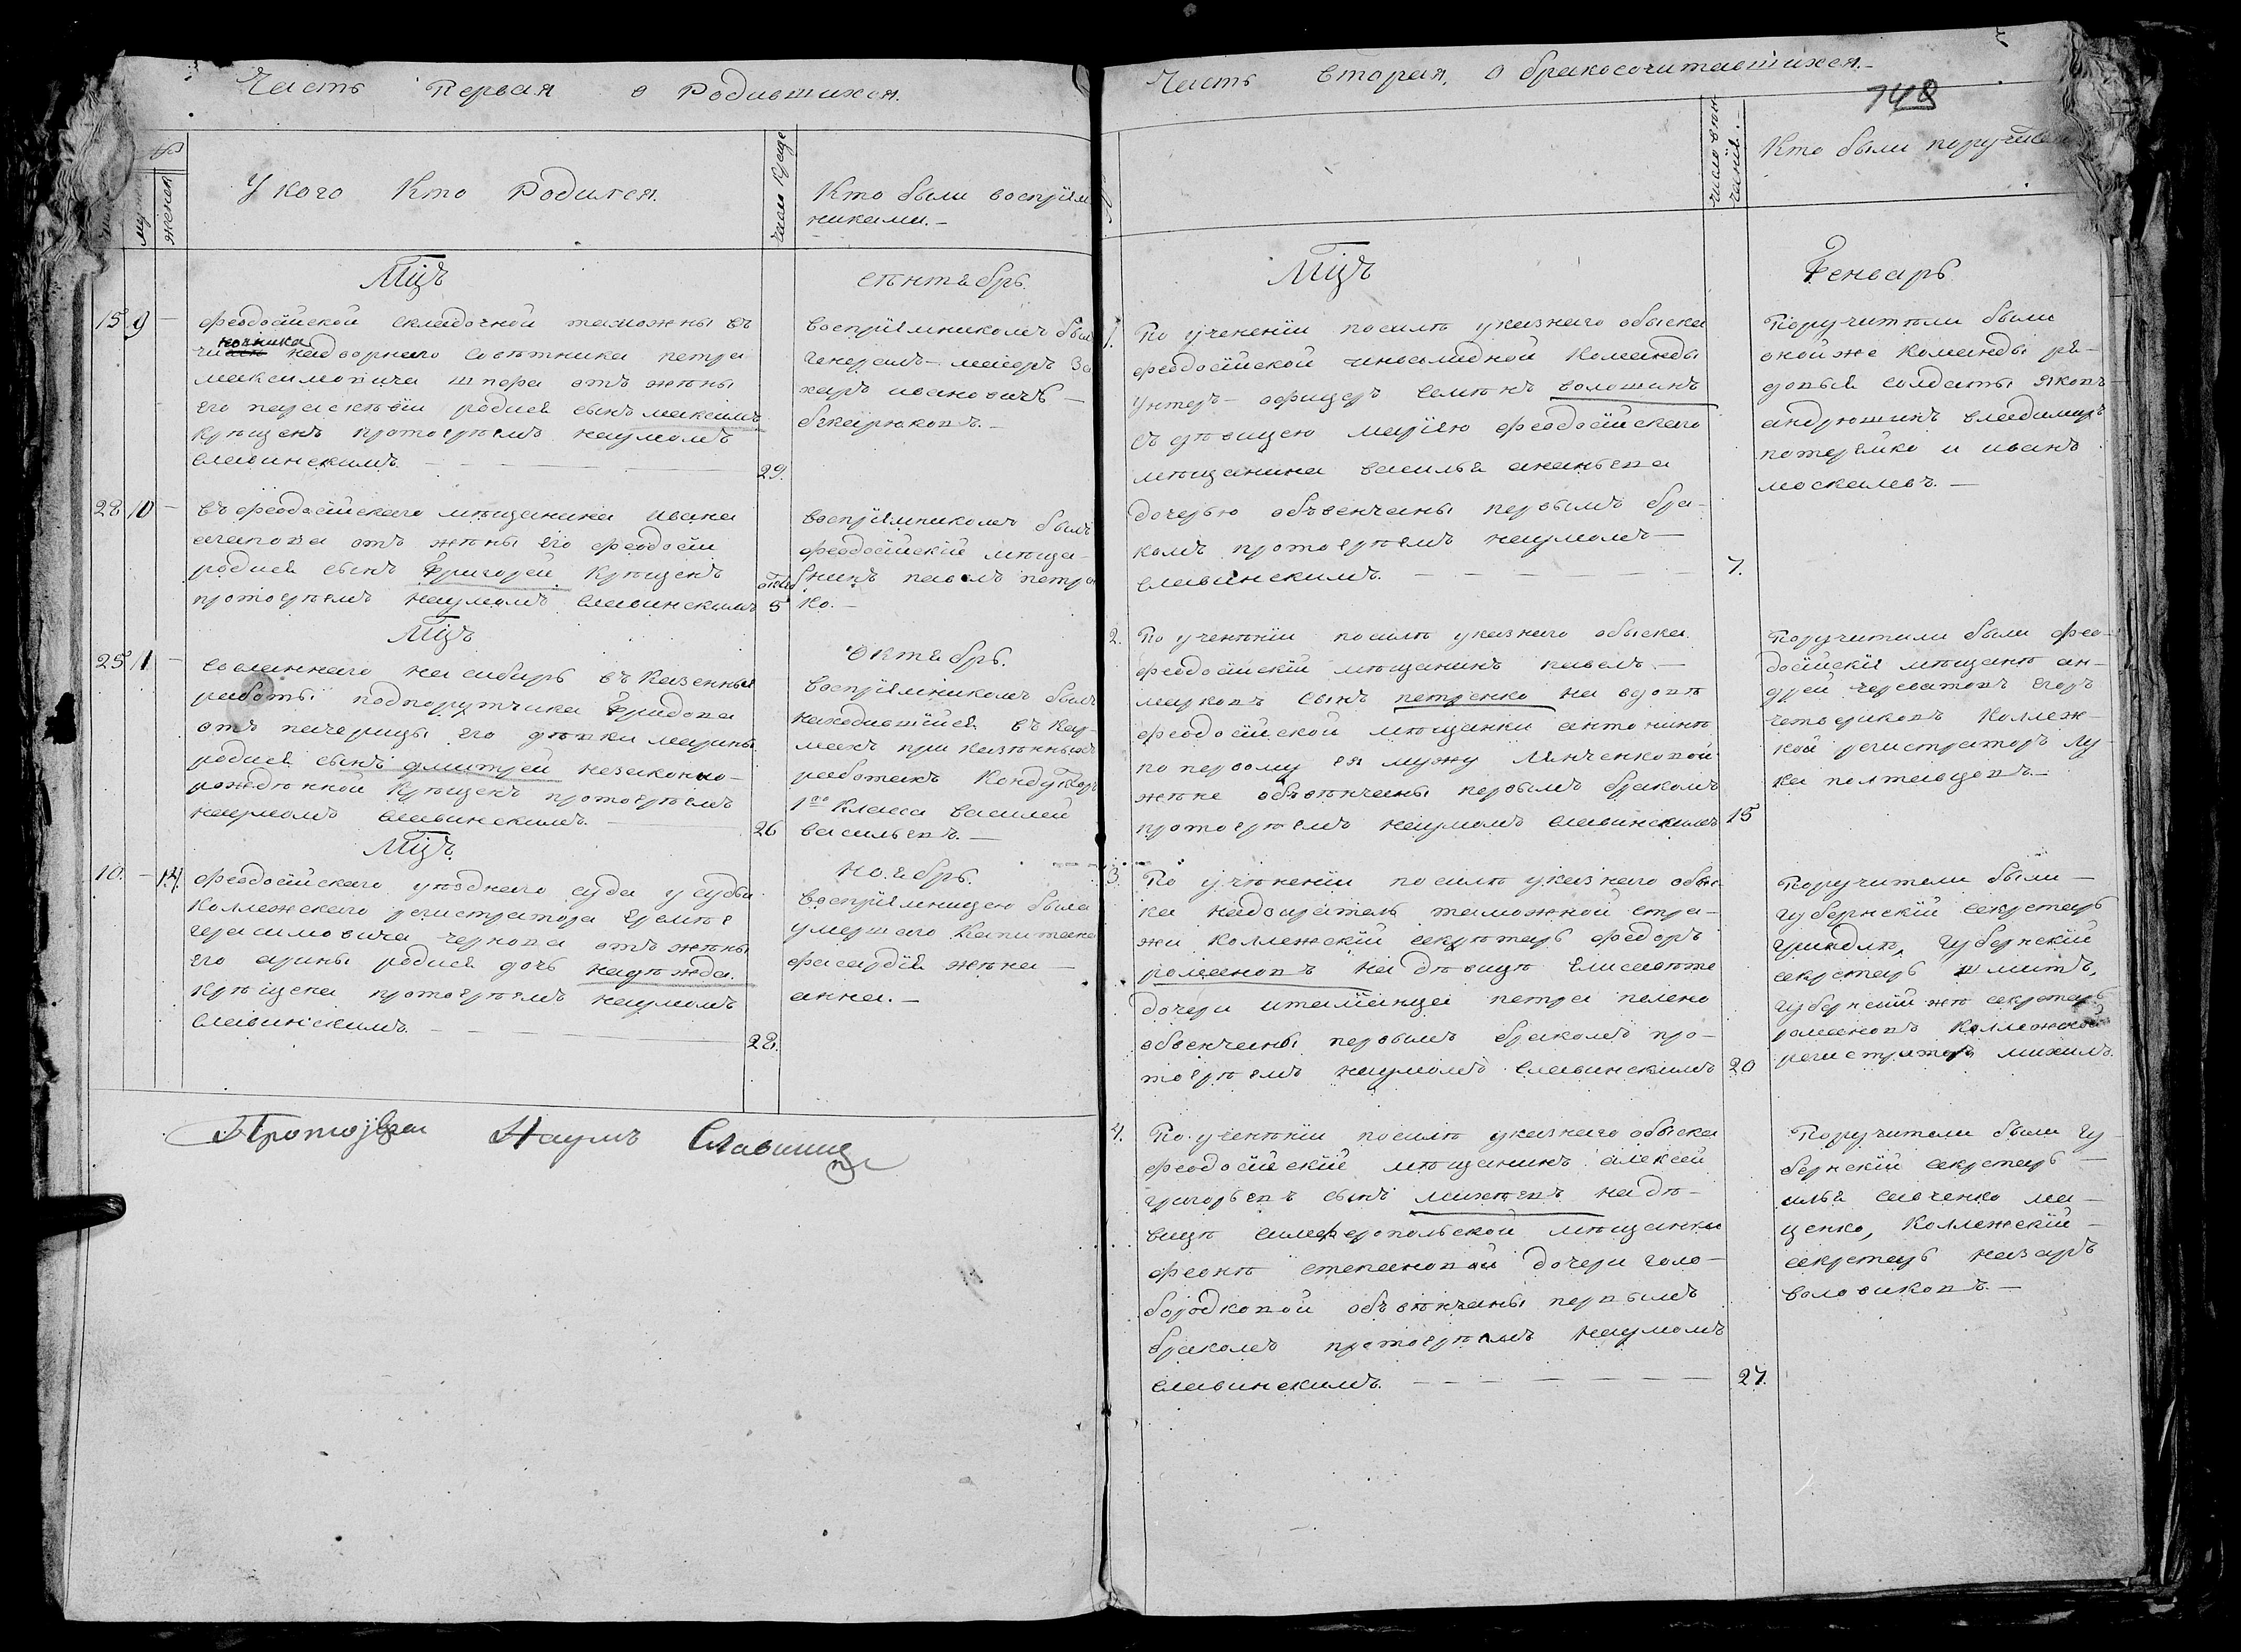 Часть Первая о Родившихся.
женск
У кого Кто Родился.
Кто были воспріем
никами.—
Мцъ
сентябрь.
15 9 —
феодосійской складочной таможны
надворнаго советника петра
максимовича шпора отъ жены
его параскевіи родися сынъ максимъ
крещенъ протоереемъ наумомъ
славинскимъ.
29.
воспріемникомъ был
генералъ-маіоръ За
харъ ивановичъ —
28 10 —
въ феодосійскаго мещанина ивана
агапова отъ жены его феодосіи
родися сынъ григорей крещенъ
протоереемъ наумомъ славинскимъ
5
воспріемникомъ былъ
феодосійскій меща-
нинъ павелъ петре
ко.—
Мцъ
октябрь.
25 11 —
сосланнаго на сибирь въ казенныя
работы подпорутчика
отъ его девки марины
родися сынъ дмитрей незаконно-
рожденной крещенъ протоереемъ
наумомъ славинскимъ.
26
воспріемникомъ былъ
находившійся въ
при казенныхъ
работахъ кондукторъ
1го класса василей
васильевъ.—
Мцъ.
ноябрь.
10. — 14.
феодосійскаго уезднаго суда у судьи
коллежскаго регистратора еремея
герасимовича чернова отъ жены
его арины родися дочь надежда.
крещена протоереемъ наумомъ
славинскимъ.
28.
воспріемницею была
умершаго капитана
жена —
анна.—
Протоіерей Наумъ Славинскі
Часть вторая, о бракосочитавшихся.—
748
число вен
чанія.
Кто были поручител
Мцъ
Генварь
1.
По учененіи посиле указнаго обыска
феодосійской инвалидной команды
унтеръ-офицеръ семенъ волошинъ
съ девицею маріею феодосійскаго
мещанина василья ананьева
дочерью объвенчаны первымъ бра-
комъ протоереемъ наумомъ —
славинскимъ.
7.
Поручители были
оной же команды ря-
довыя солдаты яковъ
андрюшинъ владимиръ
потеряйко и иванъ
москалевъ.—
2.
По учененіи посиле указнаго обыска
феодосійскій мещанинъ павелъ —
марковъ сынъ петренко на вдове
феодосійской мещанки антонине
по первому ея мужу
жене объвенчаны первымъ бракомъ
протоереемъ наумомъ славинскимъ
15
Поручители были фео-
досійскія мещане ан-
дрей егоръ
четвериковъ коллеж-
кой регистраторъ лу-
ка полтавцовъ.—
3.
По учененіи посиле указнаго обыс-
ка надзиратель таможной стра-
жи коллежскій секретарь федоръ
романовъ на девице елисавете
дочери италіянца петра
обвенчаны первымъ бракомъ про-
тоереемъ наумомъ славинскимъ
20
Поручители были —
губернскій секретарь
губернскій
секретарь шмитъ,
губернскій же секретарь
романовъ коллежской
регистраторъ михилъ.
4.
По учененіи посиле указнаго обыска
феодосійскій мещанинъ алексей
григорьевъ сынъ михеевъ на де-
вице симферопольской мещанки
феоне степановой дочери голо-
бородковой объвенчаны первымъ
бракомъ протоереемъ наумомъ
славинскимъ.
27.
Поручители были гу-
бернскій секретарь —
илья савченко ма-
ценко, коллежскій —
секретарь назаръ
воловиковъ.—